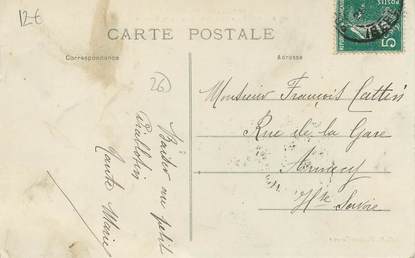 12-€
CARTE POSTALE
Correspondance
Adresse
26
POSTES
5
Baiser au petit
Diablotin
Tante Marie
Monsieur François Cattin
Rue de la Gare
Annecy
Hte Savoie